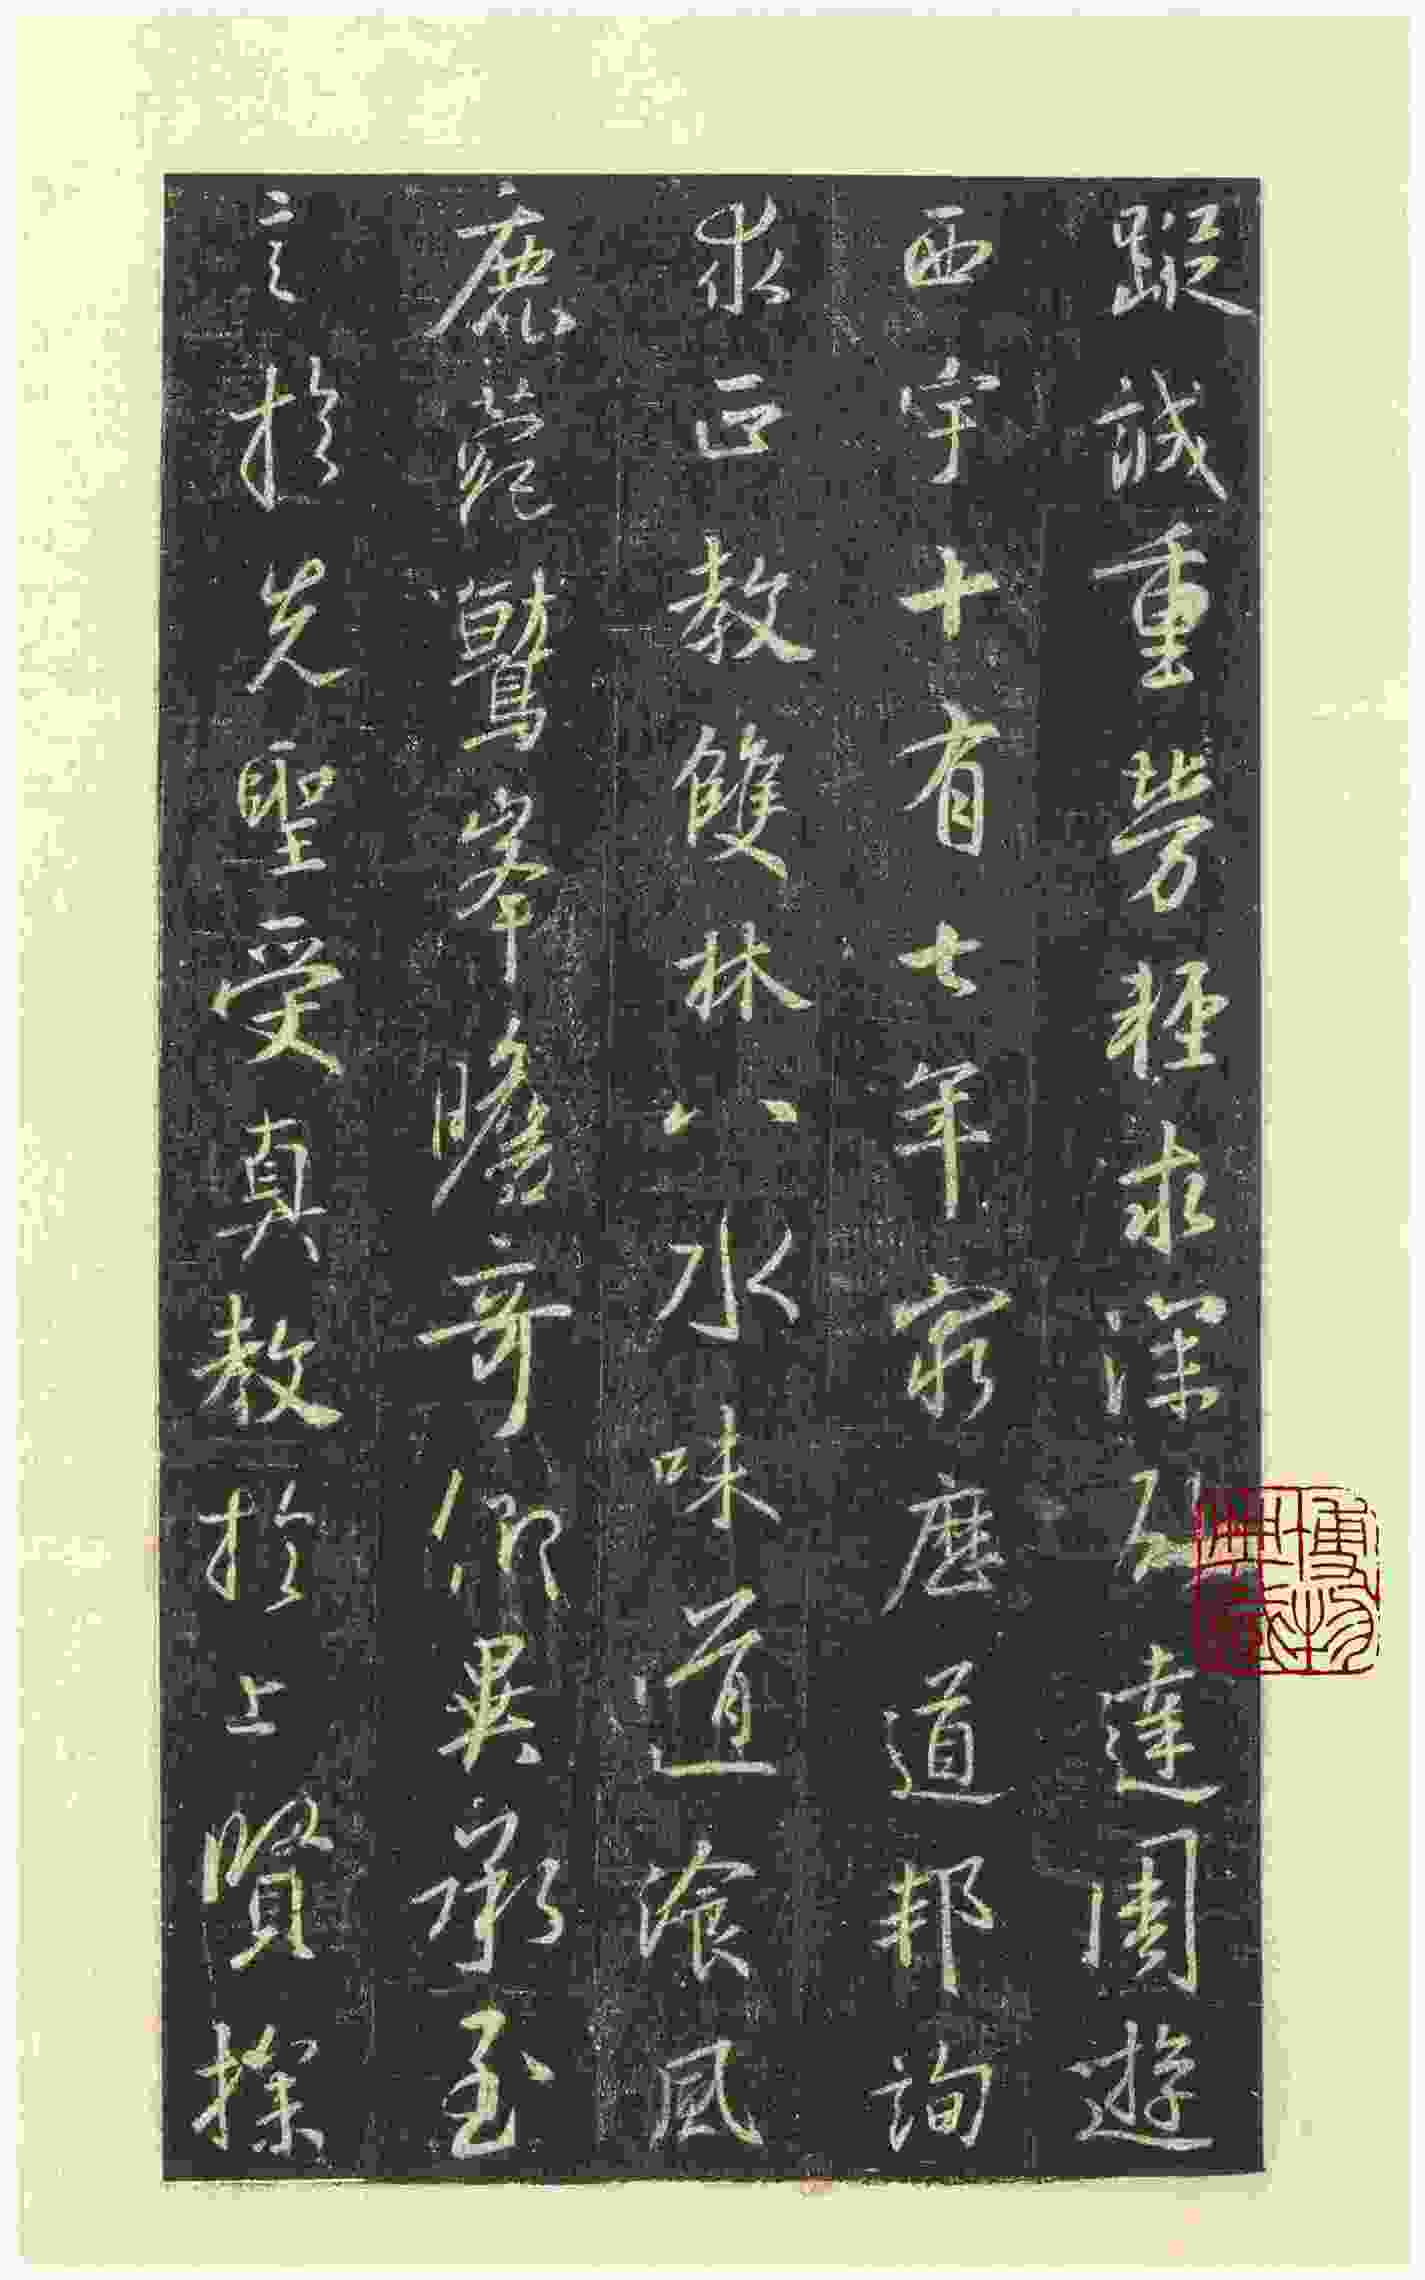 蹤誠重勞輕求深願達周遊
西宇十有七年窮歷道邦詢
求正教雙林八水味道湌風
鹿菀鷲峯瞻奇仰異承至
言於先聖受真教於上賢探